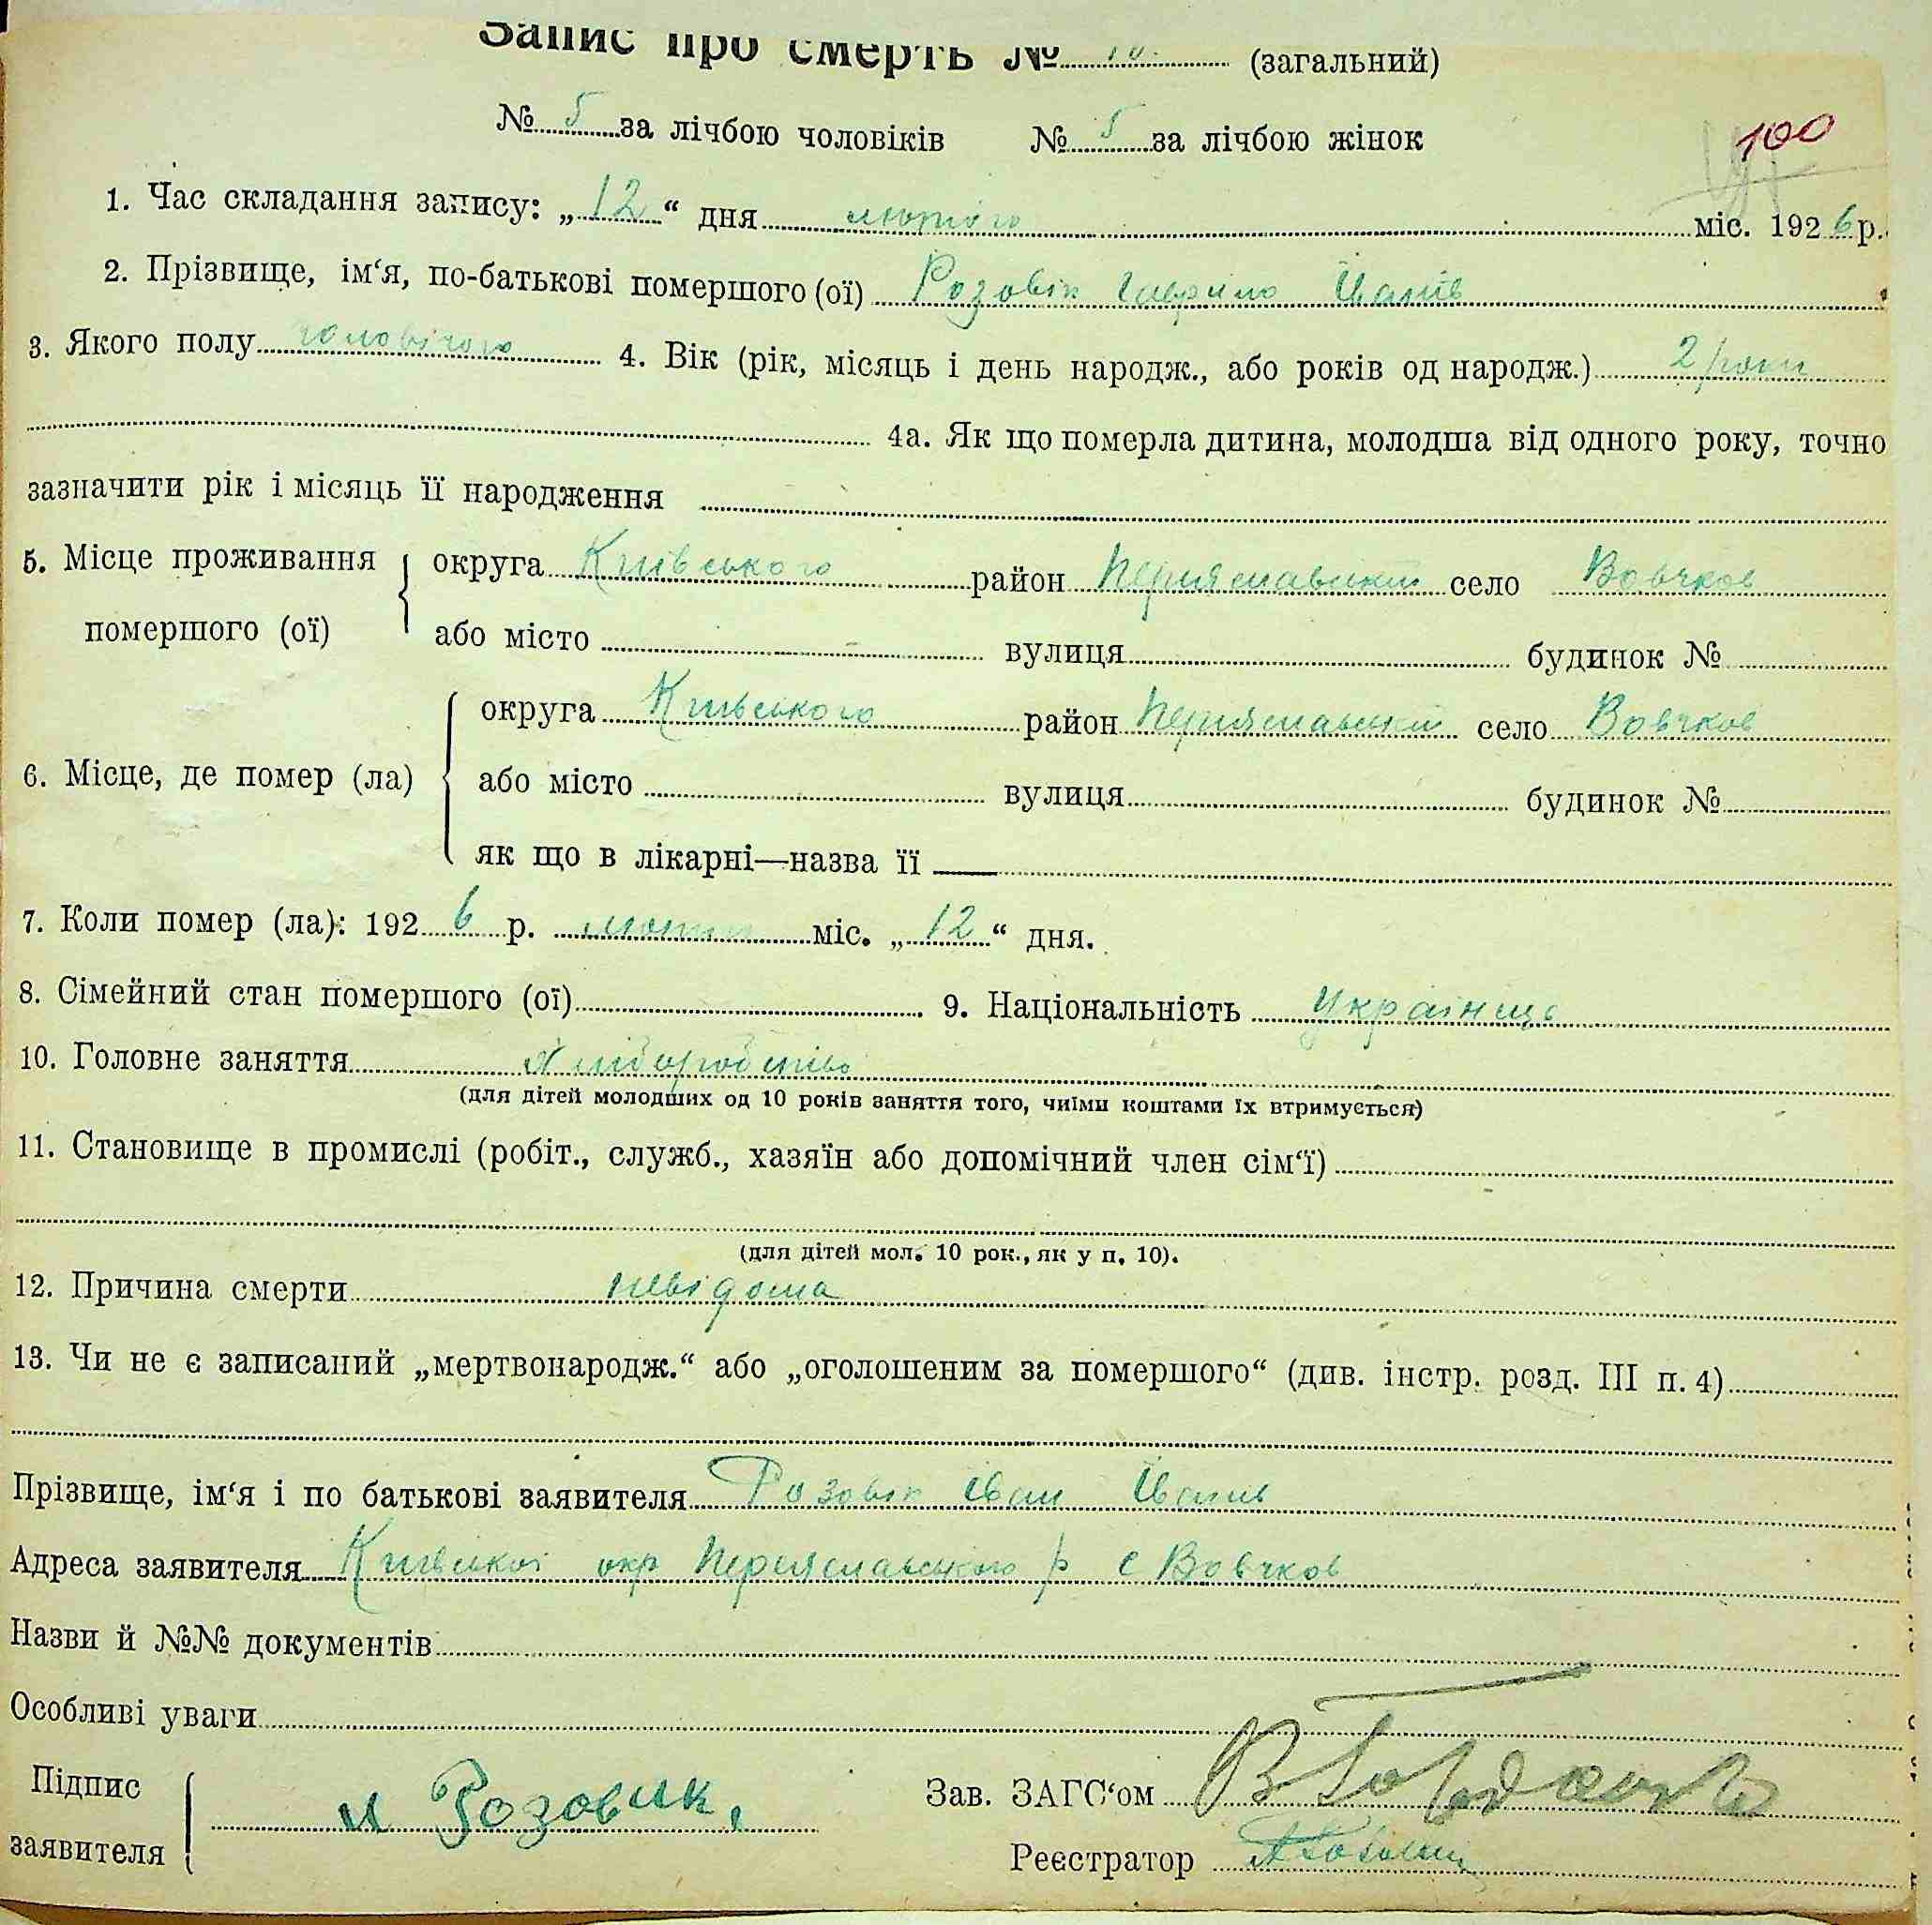 Запис про смерть № 10 (загальний)
№ 5 за лічбою чоловіків № 5 за лічбою жінок
100
1. Час складання запису: „12“ дня лютого міс. 1926 р.
2. Прізвище, ім‘я, по-батькові помершого (ої) Розовік Гаврило Іванів
3. Якого полу чоловічого 4. Вік (рік, місяць і день народж., або років од народж.) 2 роки
4а. Як що померла дитина, молодша від одного року, точно
зазначити рік і місяць її народження
5. Місце проживання помершого (ої) округа Київського район Переяславський село Вовчков
або місто вулиця будинок №
6. Місце, де помер (ла) округа Київського район Переяславський село Вовчков
або місто вулиця будинок №
як що в лікарні—назва її
7. Коли помер (ла): 1926 р. міс. „12“ дня.
8. Сімейний стан помершого (ої) 9. Національність Українець
10. Головне заняття Хліборобство
(для дітей молодших од 10 років заняття того, чиїми коштами їх втримується)
11. Становище в промислі (робіт., служб., хазяїн або допомічний член сім‘ї)
(для дітей мол. 10 рок., як у п. 10).
12. Причина смерти невідома
13. Чи не є записаний „мертвонародж.“ або „оголошеним за помершого“ (див. інстр. розд. III п. 4)
Прізвище, ім‘я і по батькові заявителя Розовік Іван Іванів
Адреса заявителя Київської окр Переяславського р с Вовчков
Назви й №№ документів
Особливі уваги
Підпис заявителя и Розовик.
Зав. ЗАГС‘ом
Реєстратор